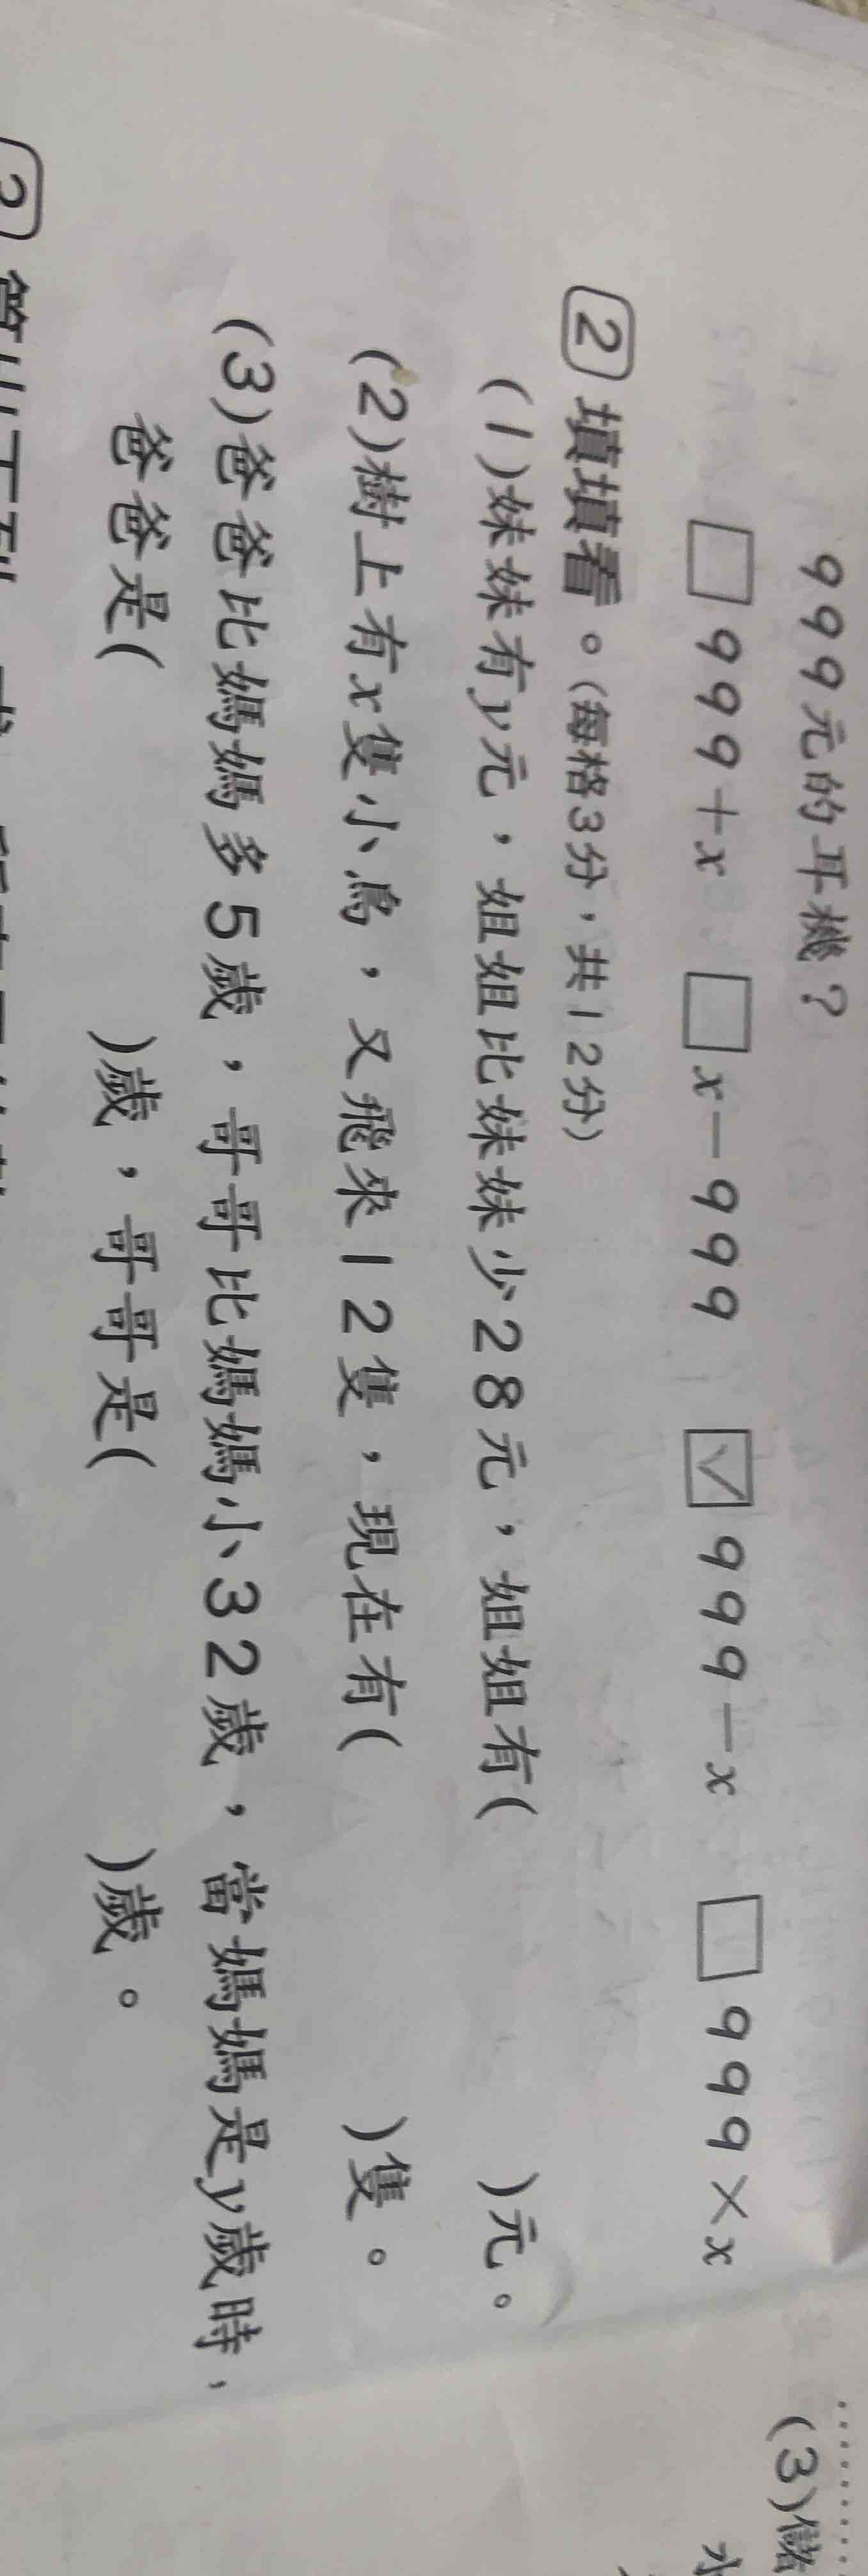 999元的耳機？
□999+x □x-999 ☑999-x □999×x
2 填填看。(每格3分，共12分)
(1)妹妹有y元，姐姐比妹妹少28元，姐姐有( )元。
(2)樹上有x隻小鳥，又飛來12隻，現在有( )隻。
(3)爸爸比媽媽多5歲，哥哥比媽媽小32歲，當媽媽是y歲時，
爸爸是( )歲，哥哥是( )歲。
(3)儲